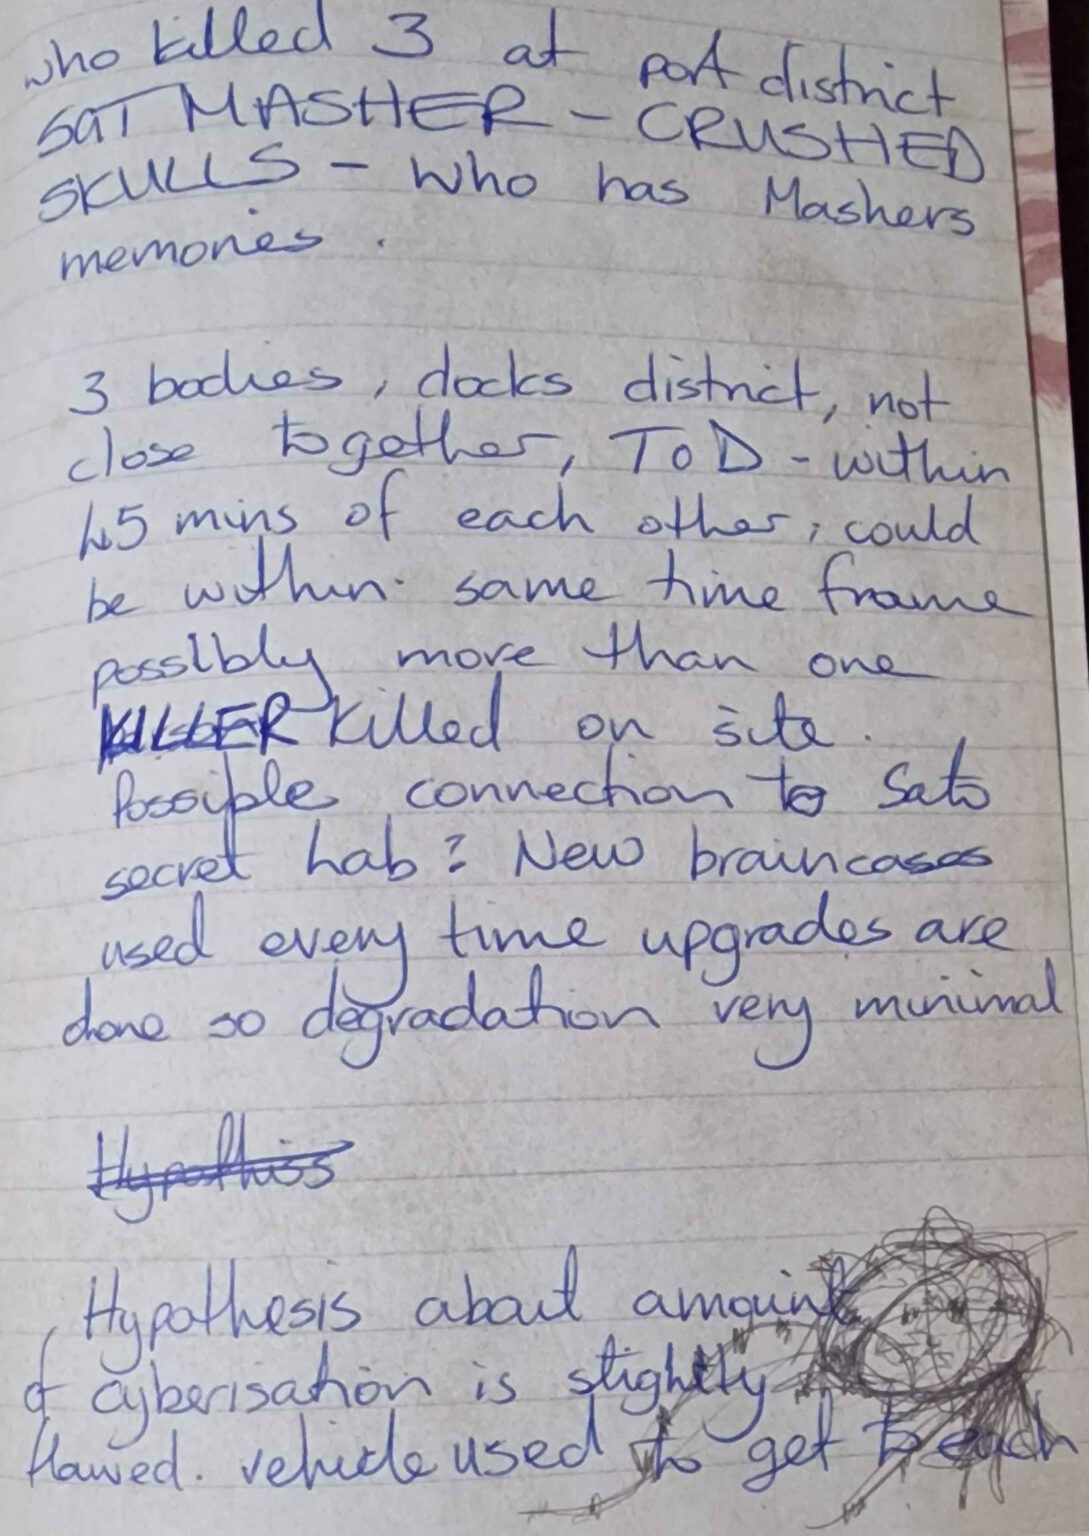 who killed 3 at port district
SAT MASHER - CRUSHED
SKULLS - Who has Mashers
memories.
3 bodies, docks district, not
close together, ToD - within
45 mins of each other, could
be within same time frame
possibly more than one
KILLER killed on site.
Possible connection to Sato
secret lab? New braincases
used every time upgrades are
done so degradation very minimal
Hypothiss
Hypothesis about amount
of cyberisation is slightly
flawed. vehicle used to get to each